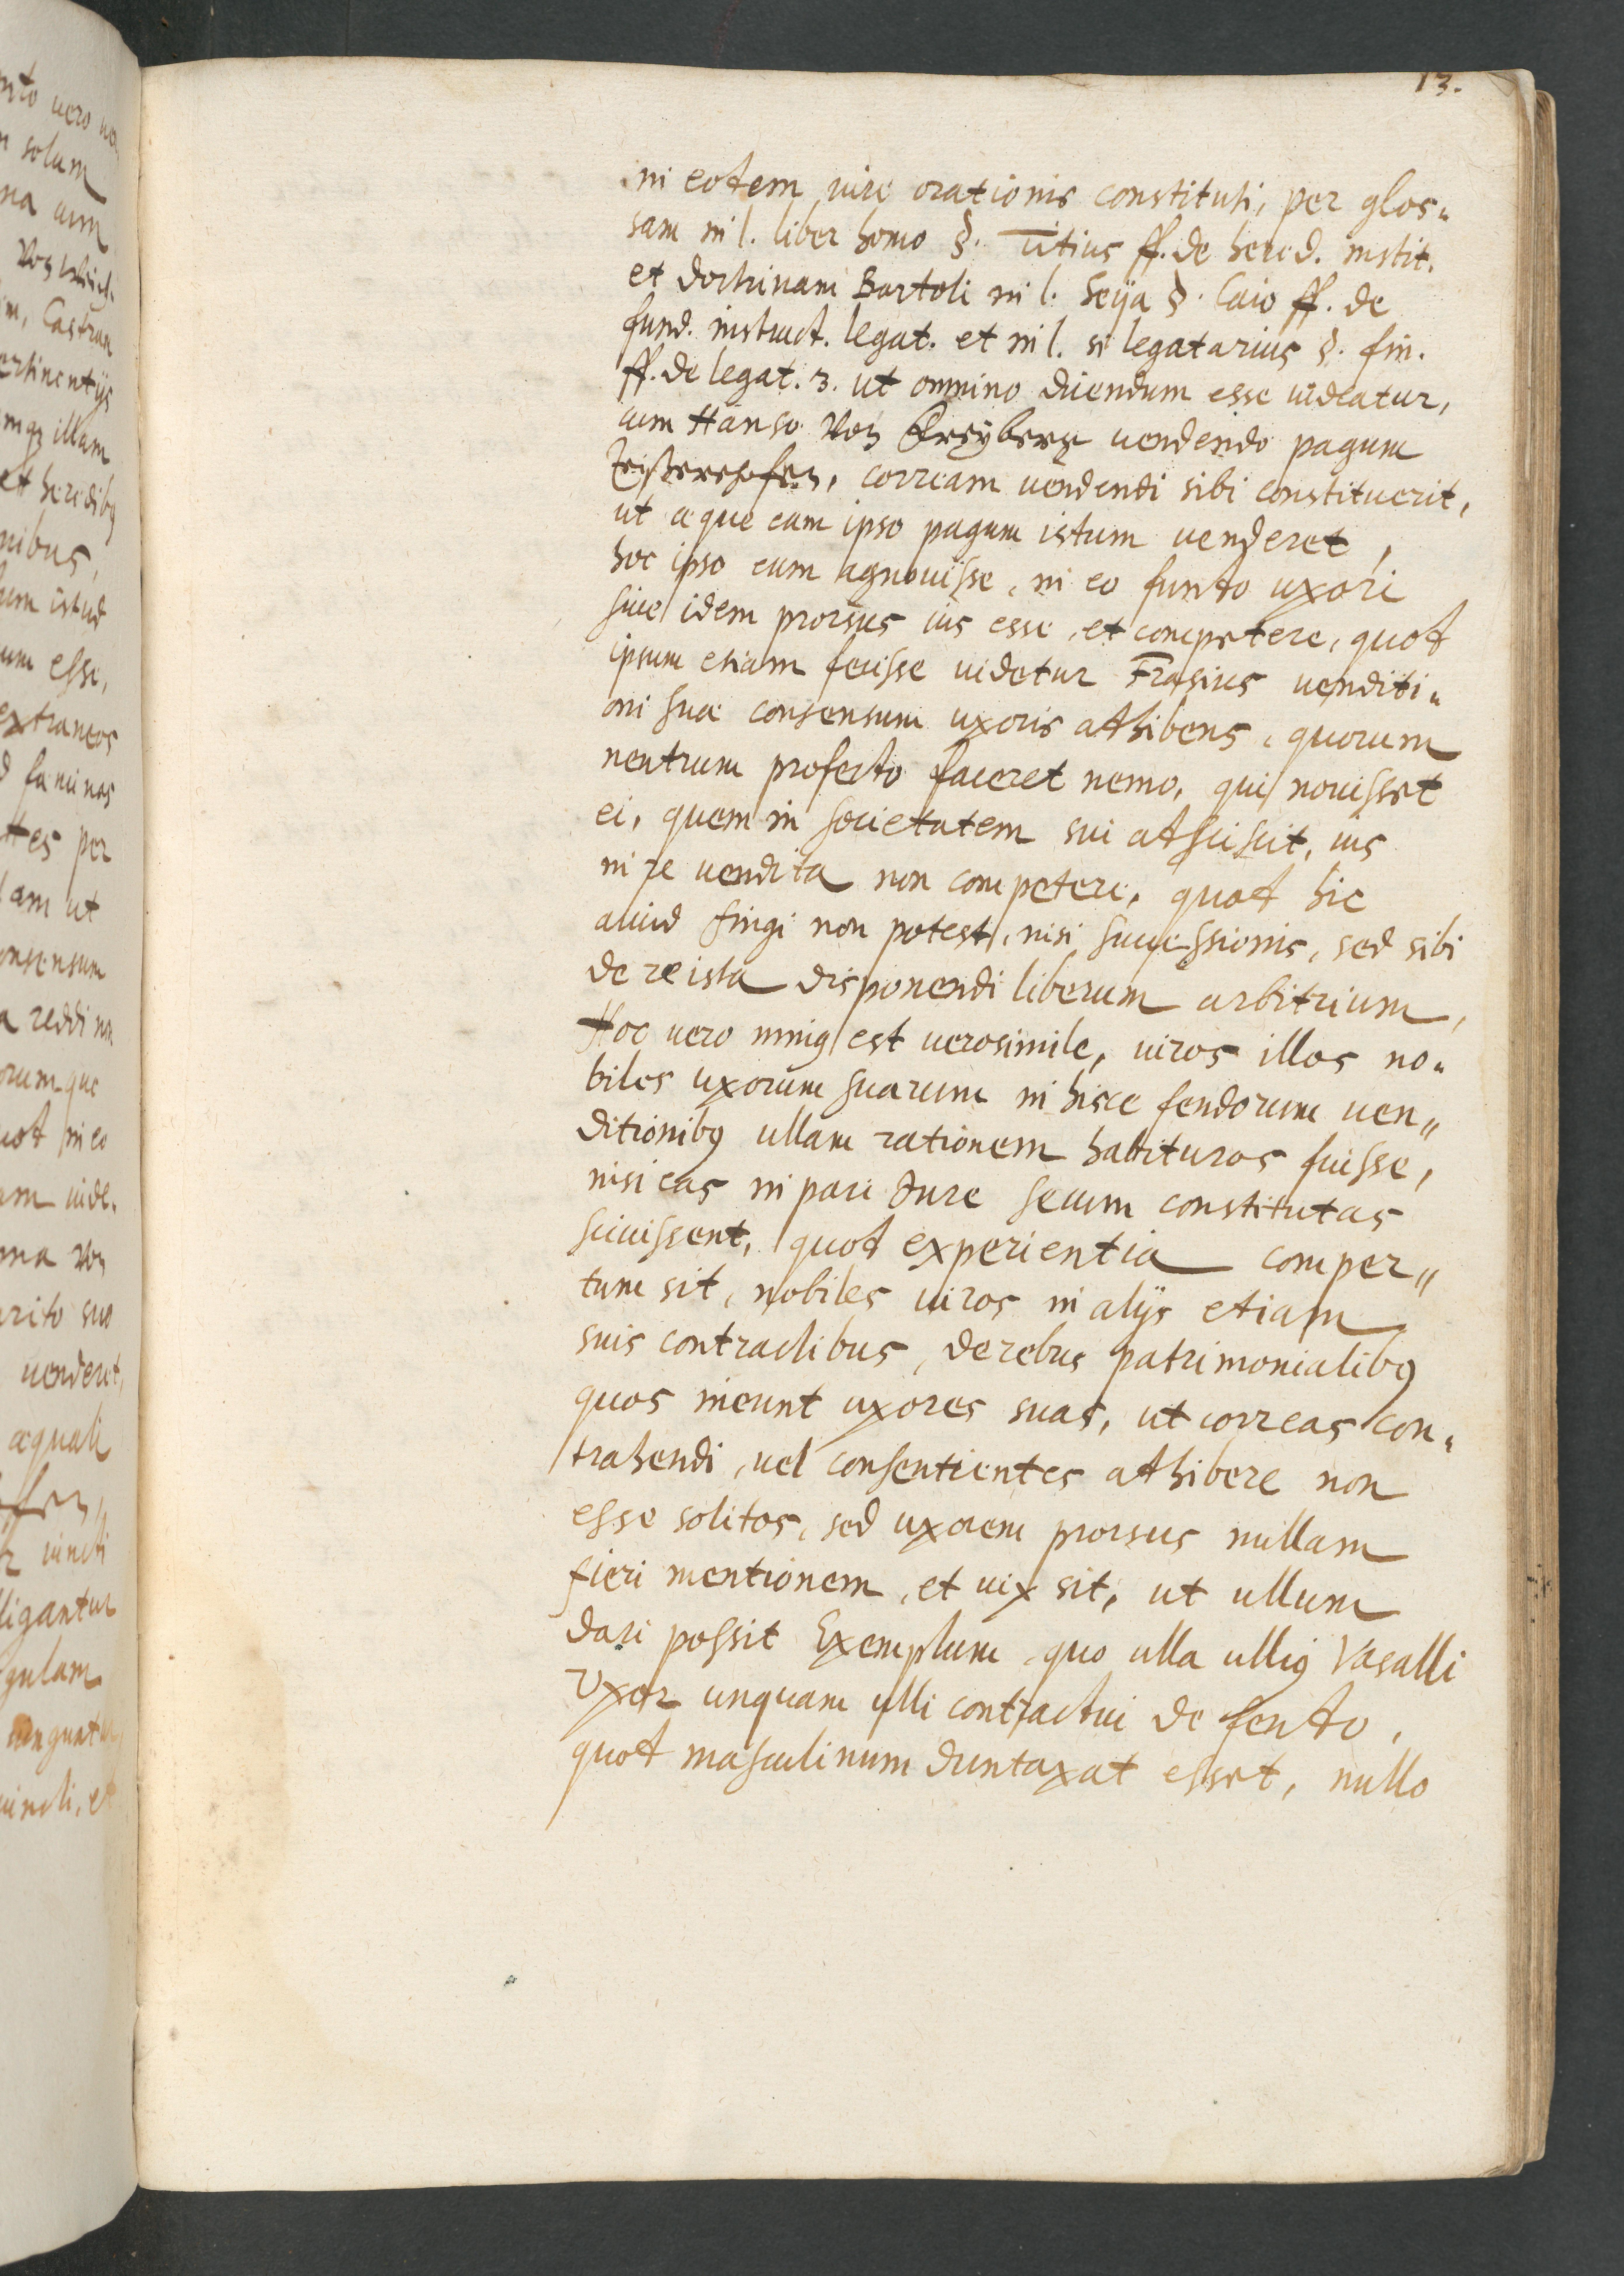 13.
in eodem iure orationis constituti, per glos„
sam in l. liber homo §. Titius ff. de hered. instit.
et doctrinam Bartoli in l. Seÿa §. Caio ff. de
fund. instruct. legat. et in l. si legatarius §. fin.
ff. de legat. 3. ut omnino dicendum esse uideatur,
cum Hanso Von Freÿberg uendendo pagum
corream uendendi sibi constituerit,
ut æque eam ipso pagum istum uenderet,
hoc ipso eum agnouisse, in eo fundo uxori
suæ idem prorsus ius esse, et competere, quod
ipsum etiam fecisse uidetur Erasius venditi„
oni suæ consensum uxoris adhibens, quorum
neutrum profecto faceret nemo, qui nouisset
ei, quem in societatem sui adsciscit, ius
in re uendita non competere, quod hic
aliud fingi non potest, nisi successionis, sed sibi
de re ista disponendi liberum arbitrium,
Hoc uero minus est uerosimile, uiros illos no„
biles uxorum suarum in hisce feudorum uen„
ditionibus ullam rationem habituros fuisse,
nisi eas in pari iure secum constitutas
sciuissent, quod experientia comper„
tum sit, nobiles uiros in alÿs etiam
suis contractibus, de rebus patrimonialibus
quos ineunt uxores suas, ut correas con„
trahendi, uel consentientes adhibere non
esse solitos, sed uxorem prorsus nullam
fieri mentionem, et uix sit, ut ullum
dari possit Exemplum, quo ulla ullius Vasalli
Uxor unquam ulli contractui de feudo,
quod masculinum duntaxat esset, nullo